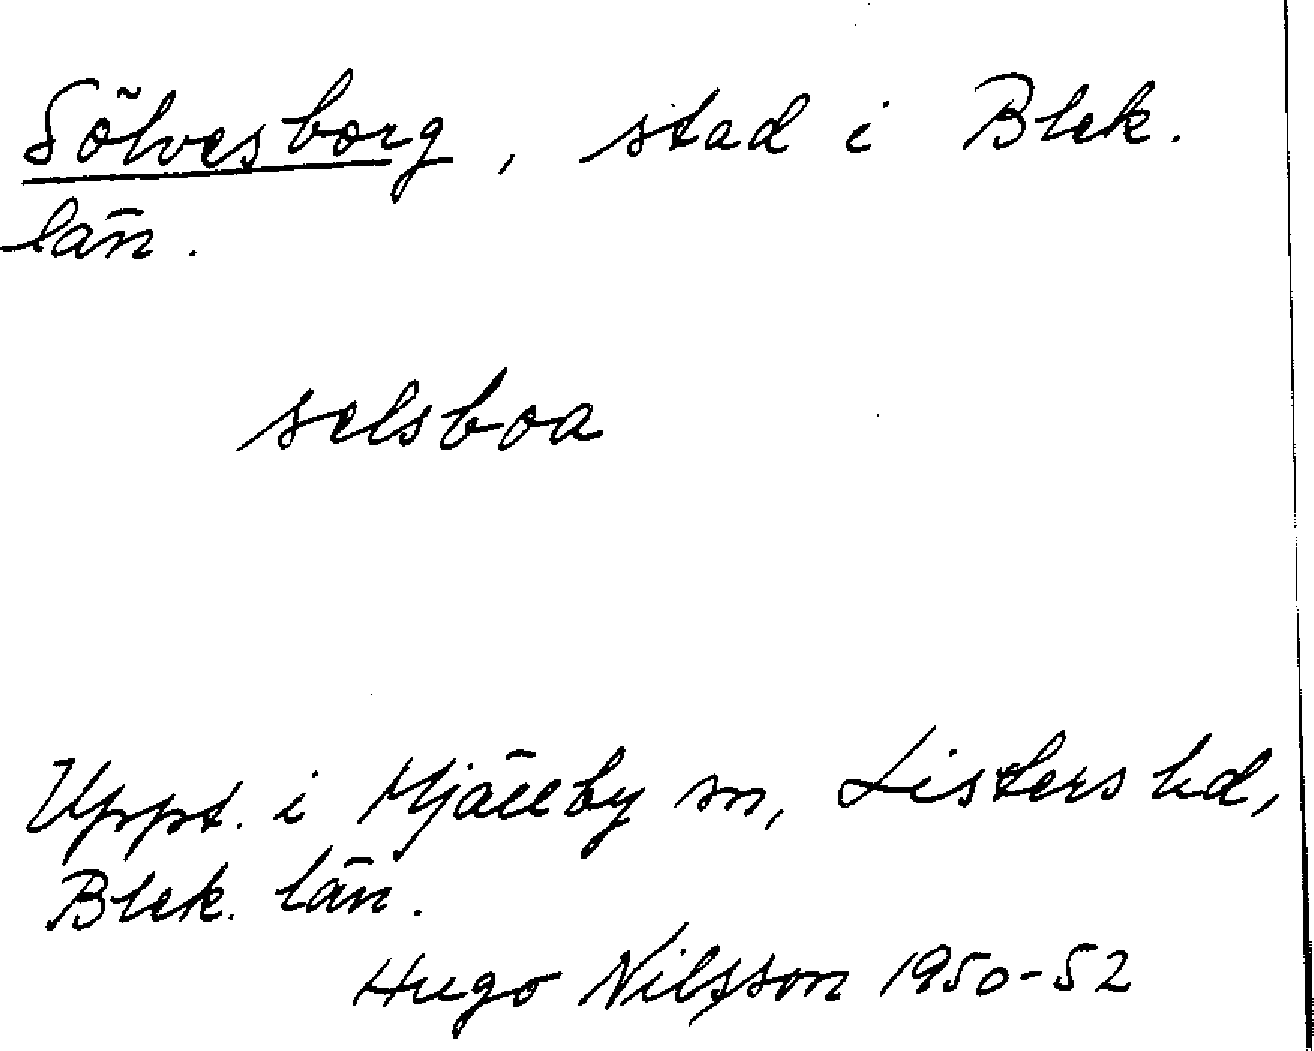 Sölvesborg, stad i Blek.
län.
selsboa
Uppt. i Mjällby sn, Listers hd,
Blek. län.
Hugo Nilsson 1950-52